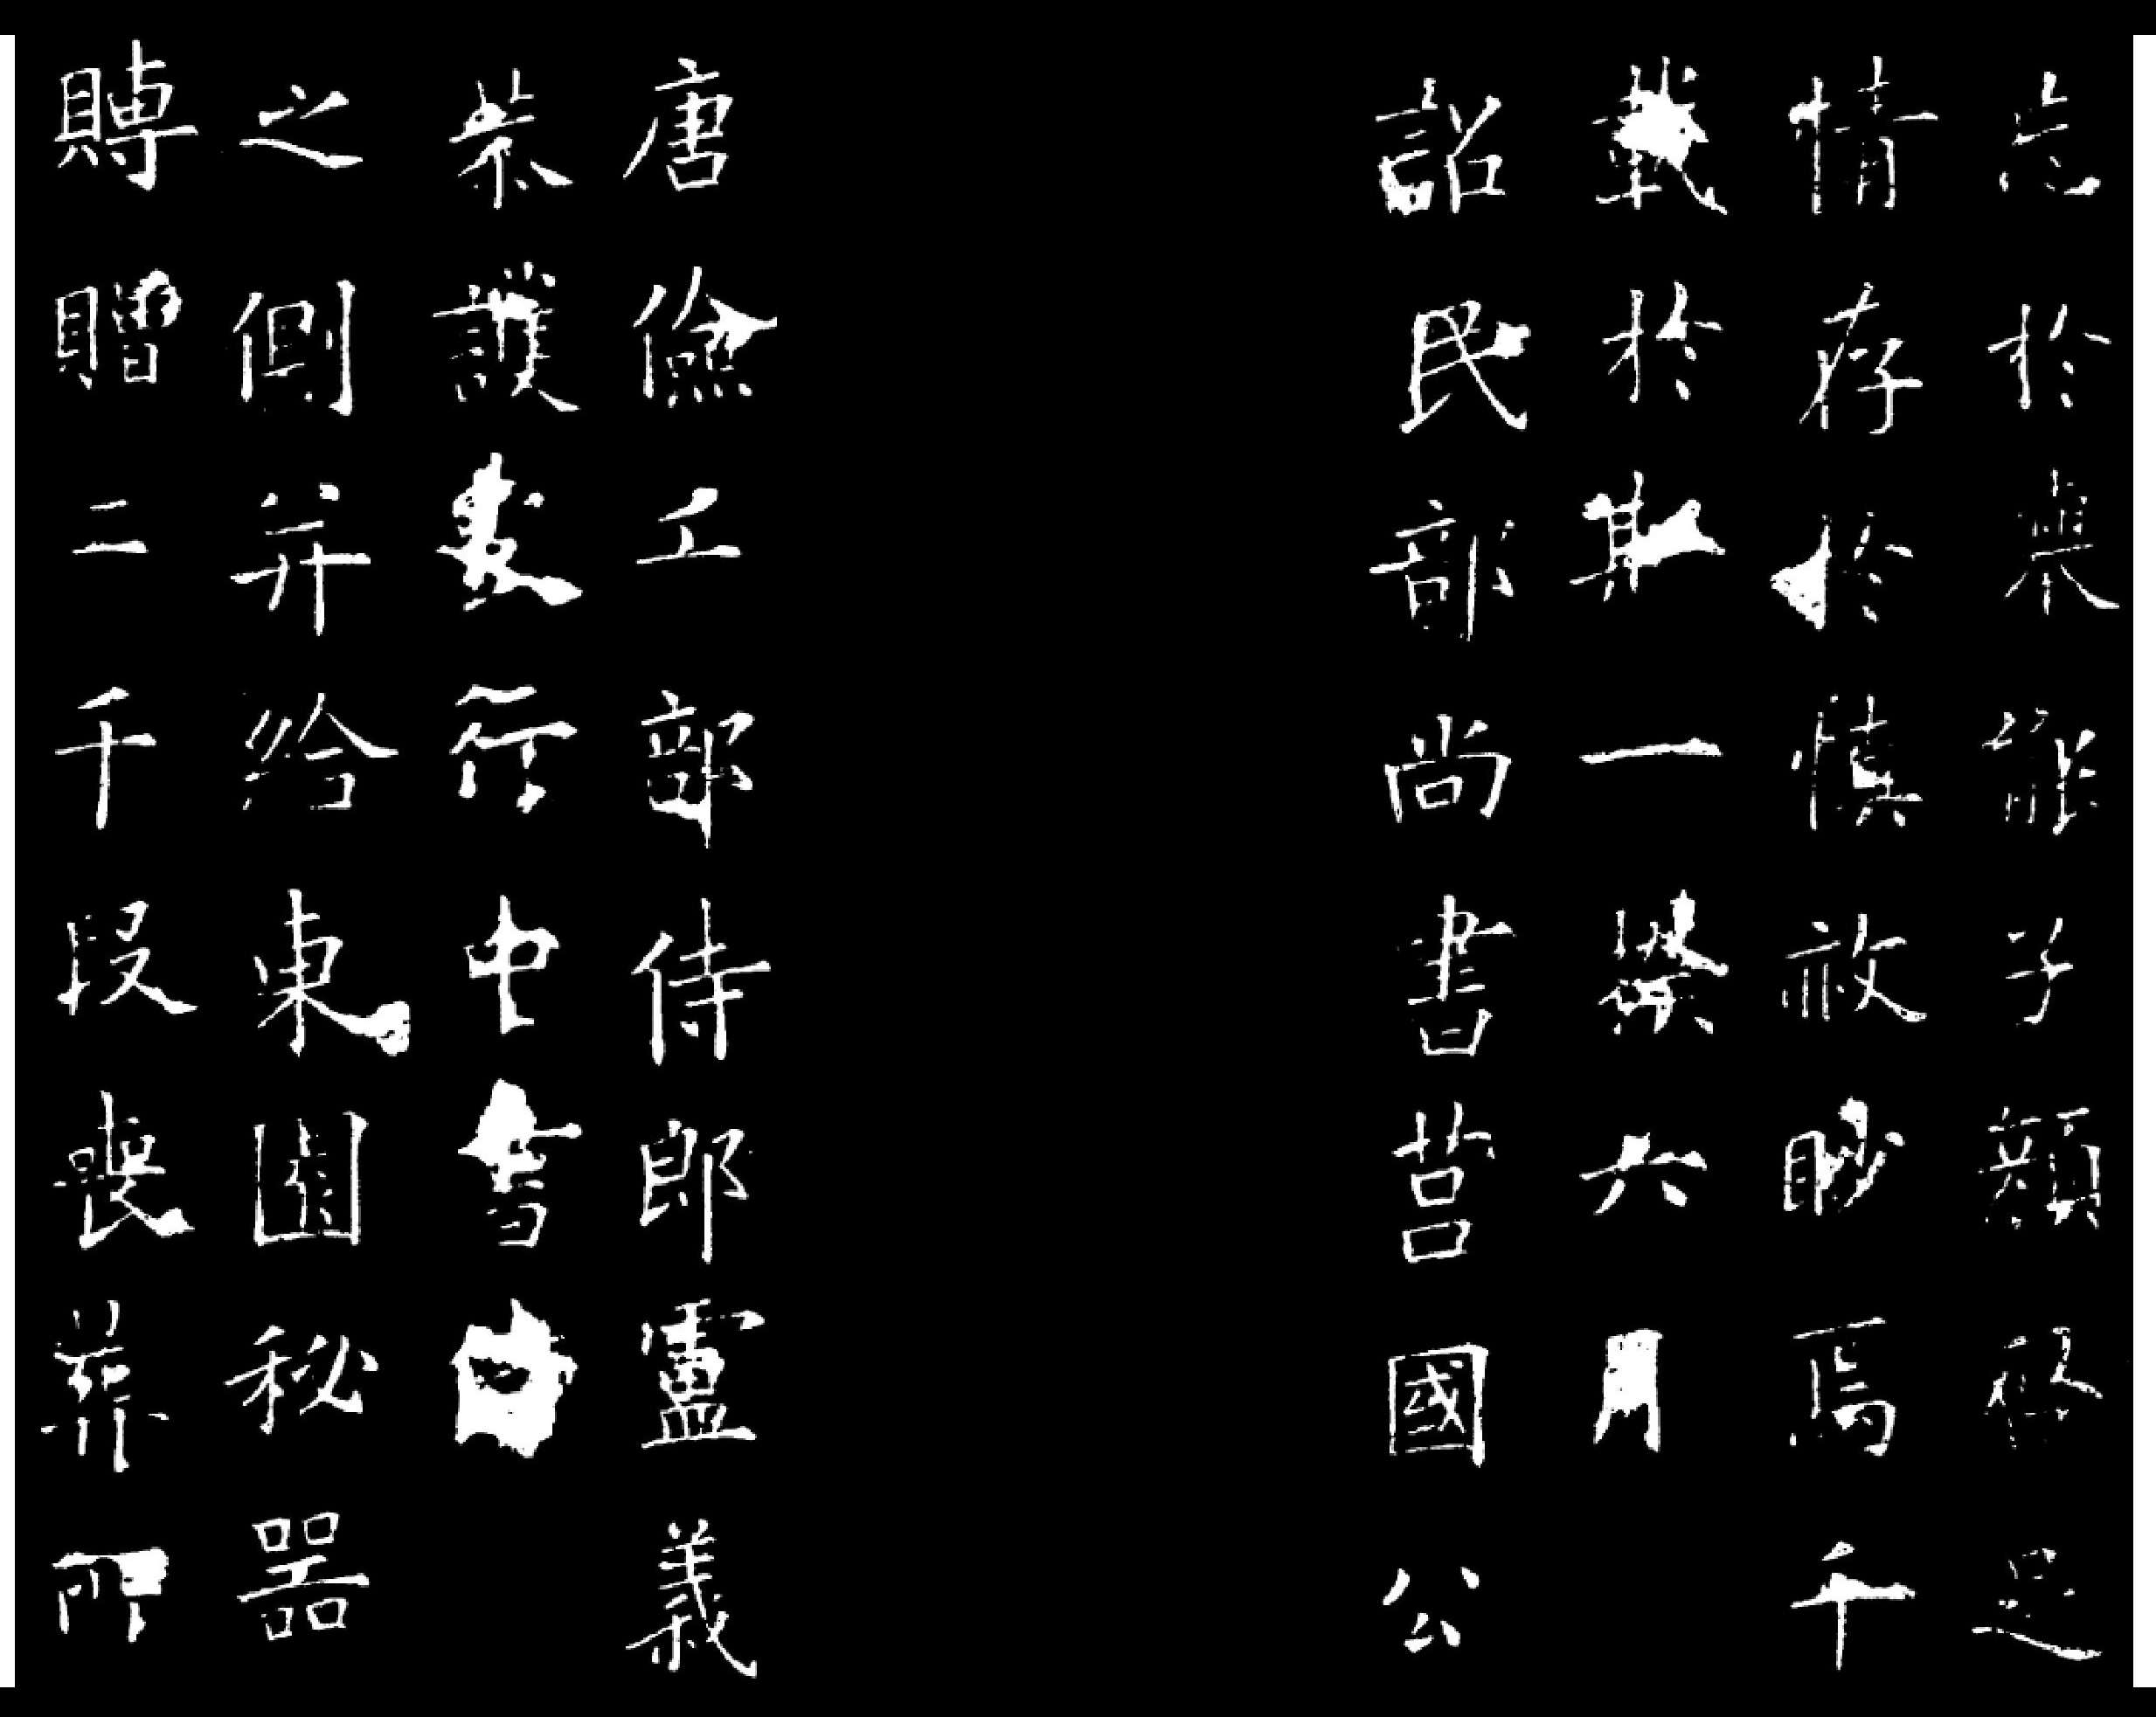 志於舉能子顏啓足
情存於慎赦眇焉千
載於斯一揆六月
詔民部尚書莒國公
唐儉工部侍郎盧義
恭護喪行中書
之側并給東園秘器
賻贈二千段喪葬所